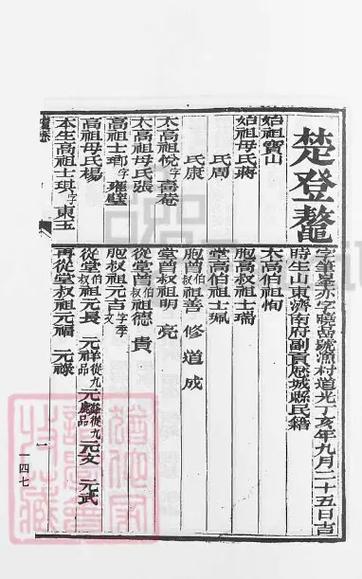 楚登鰲
字筆峯亦字曉岳號漁村道光丁亥年九月二十五日吉
時生山東濟南府副貢歷城縣民籍
始祖寶山
始祖母氏蔣
氏周
氏康
太高祖悅字喜菴
太高祖母氏張
高祖士瑯字雍璧
高祖母氏楊
本生高祖士琪字東玉
太高伯祖恂
胞高叔祖士瑞
堂高伯祖士珮
胞曾伯叔祖善 修 道 成
堂曾叔祖明 亮
從堂曾伯叔祖德 貴
胞叔祖元吉字季文
從堂伯叔祖元長 元祥從九品 元麟從九品 元文 元武
再從堂叔祖元福 元祿
一
一四七